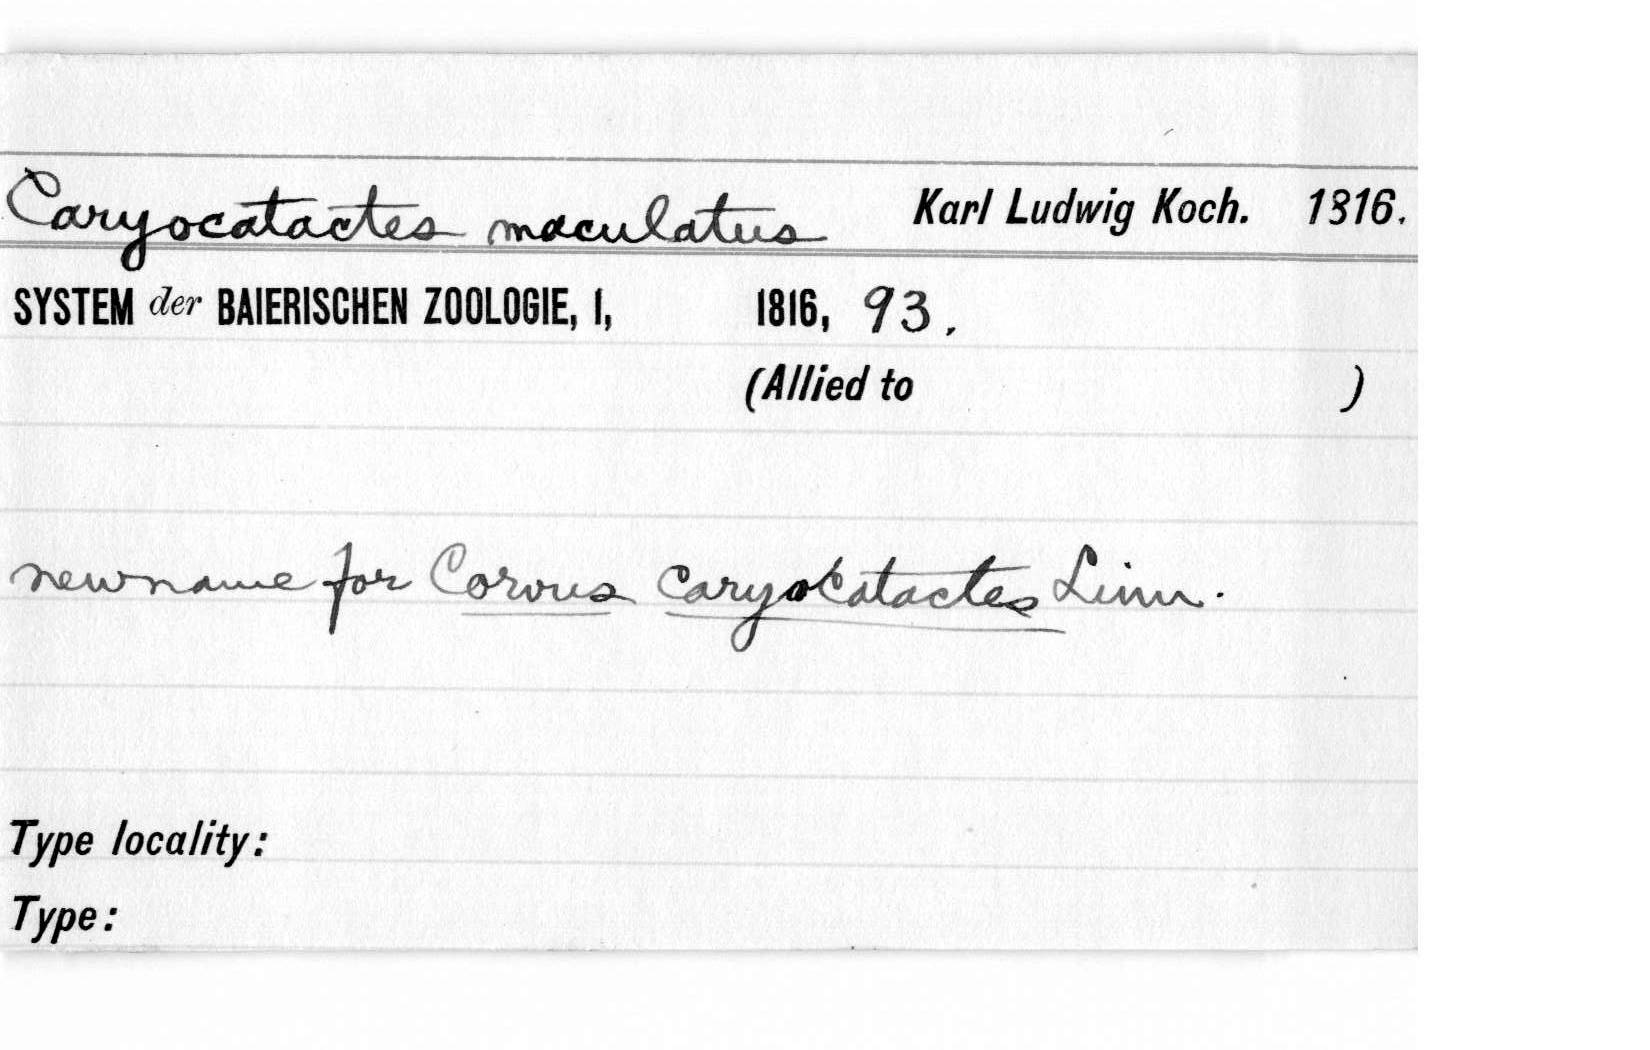 Caryocatactes maculatus Karl Ludwig Koch. 1816.
SYSTEM der BAIERISCHEN ZOOLOGIE, I, 1816, 93.
(Allied to )
new name for Corvus caryocatactes Linn.
Type locality:
Type: